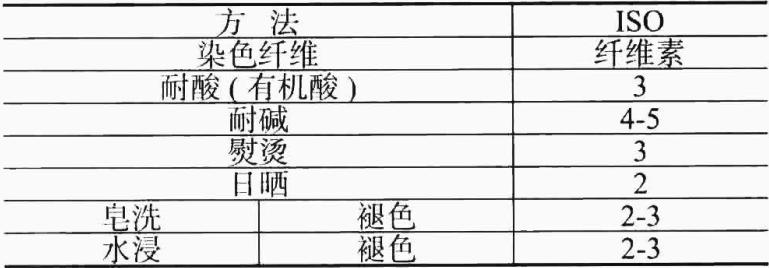 方 法 ISO
染色纤维 纤维素
耐酸(有机酸) 3
耐碱 4-5
熨烫 3
日晒 2
皂洗 褪色 2-3
水浸 褪色 2-3